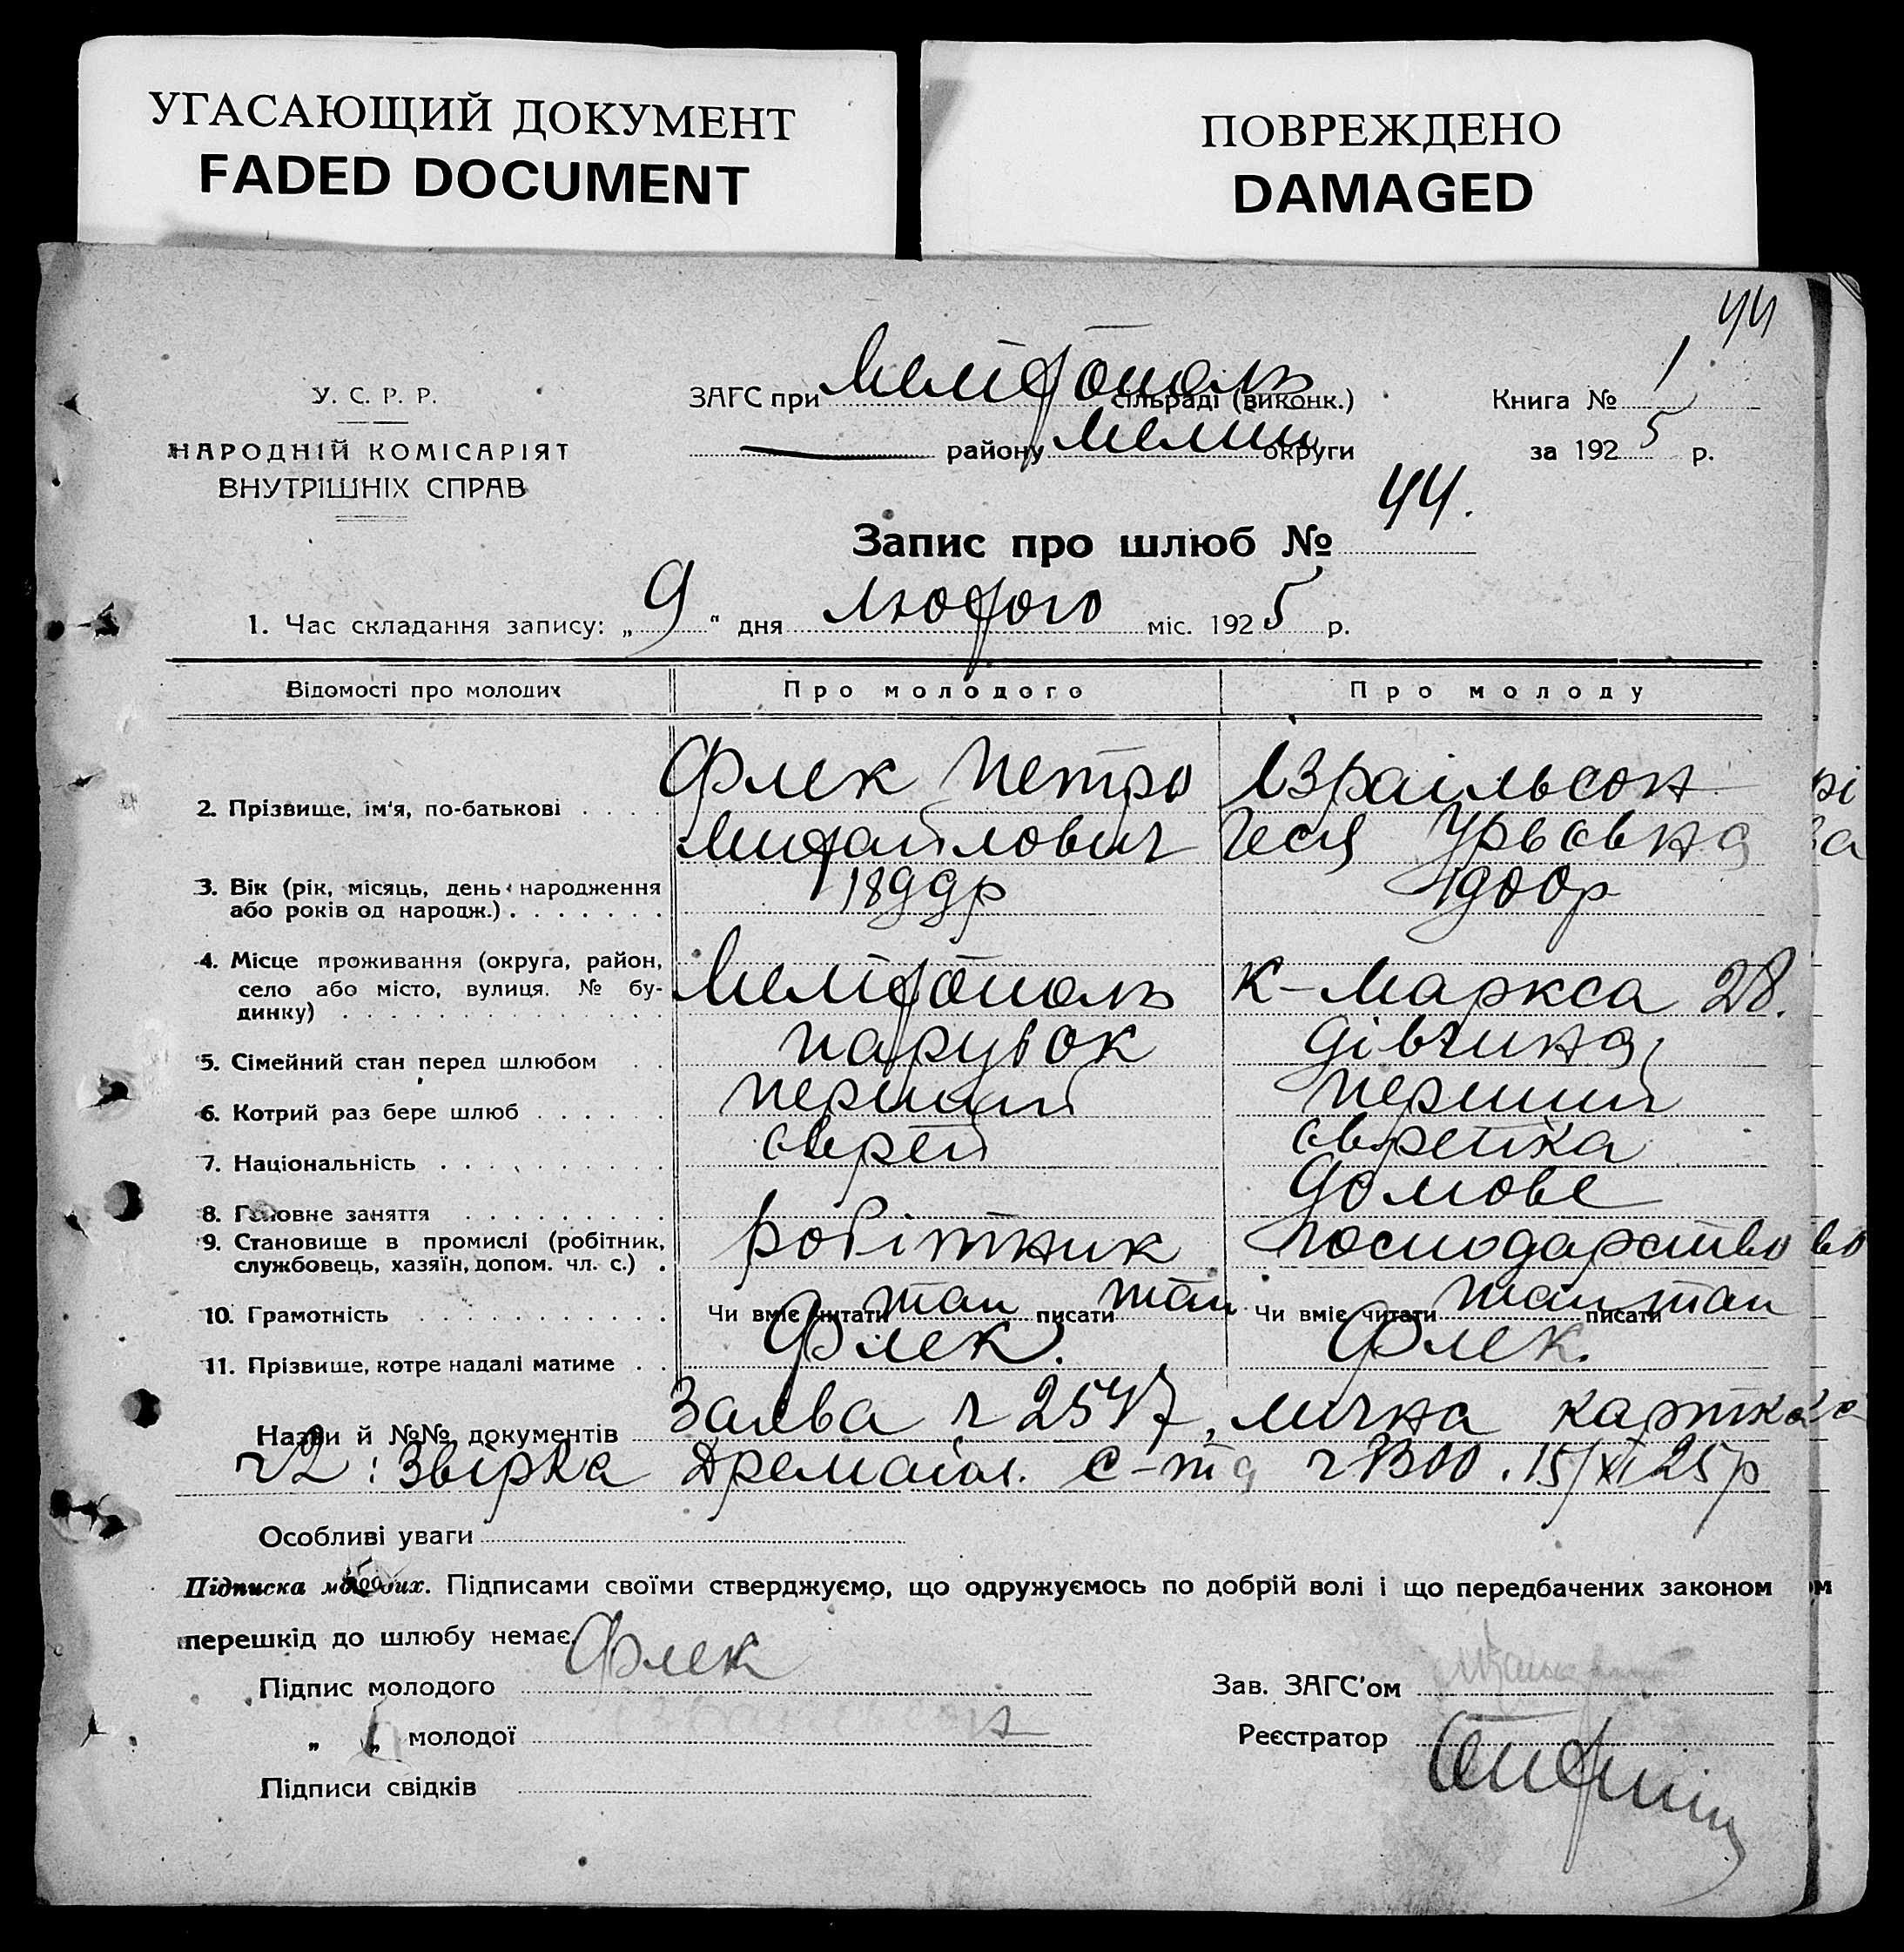 УГАСАЮЩИЙ ДОКУМЕНТ
FADED DOCUMENT
ПОВРЕЖДЕНО
DAMAGED
44
У. С. Р. Р.
НАРОДНІЙ КОМІСАРІЯТ
ВНУТРІШНІХ СПРАВ
ЗАГС при сільраді (виконк.)
району округи
Книга № 1
за 1925 р.
Запис про шлюб № 44.
1. Час складання запису: „ 9 “ дня лютого міс. 1925 р.
Відомості про молодих Про молодого Про молоду
2. Прізвище, ім'я, по-батькові Флек Петро Ізраільсон
Михайлович Геся Урьовна
3. Вік (рік, місяць, день народження 1899р 1900р
або років од народж.)
4. Місце проживання (округа, район,
село або місто, вулиця. № бу- К-Маркса 28.
динку)
5. Сімейний стан перед шлюбом парубок дівчина
6. Котрий раз бере шлюб перший перший
7. Національність еврей еврейка
8. Головне заняття домове
9. Становище в промислі (робітник, робітник господарство
службовець, хазяїн, допом. чл. с.)
10. Грамотність Чи вміє читати так писати так Чи вміє читати так писати так
11. Прізвище, котре надалі матиме Флек. Флек.
Назви й №№ документів Заява ч 2547, лична картка
ч2: Звірка 15/XI 25р
Особливі уваги
Підписка молодих. Підписами своїми стверджуємо, що одружуємось по добрій волі і що передбачених законом
перешкід до шлюбу немає.
Підпис молодого Флек
Зав. ЗАГС'ом
„ „ молодої
Реєстратор
Підписи свідків